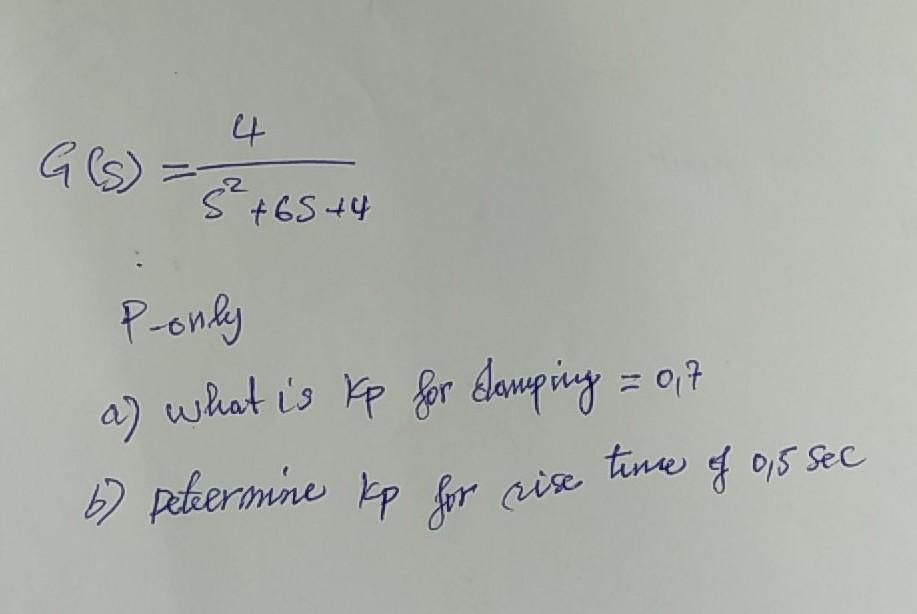 G(s) = 4
s² + 6s + 4
P-only
a) what is Kp for damping = 0,7
b) Determine Kp for rise time of 0,5 sec